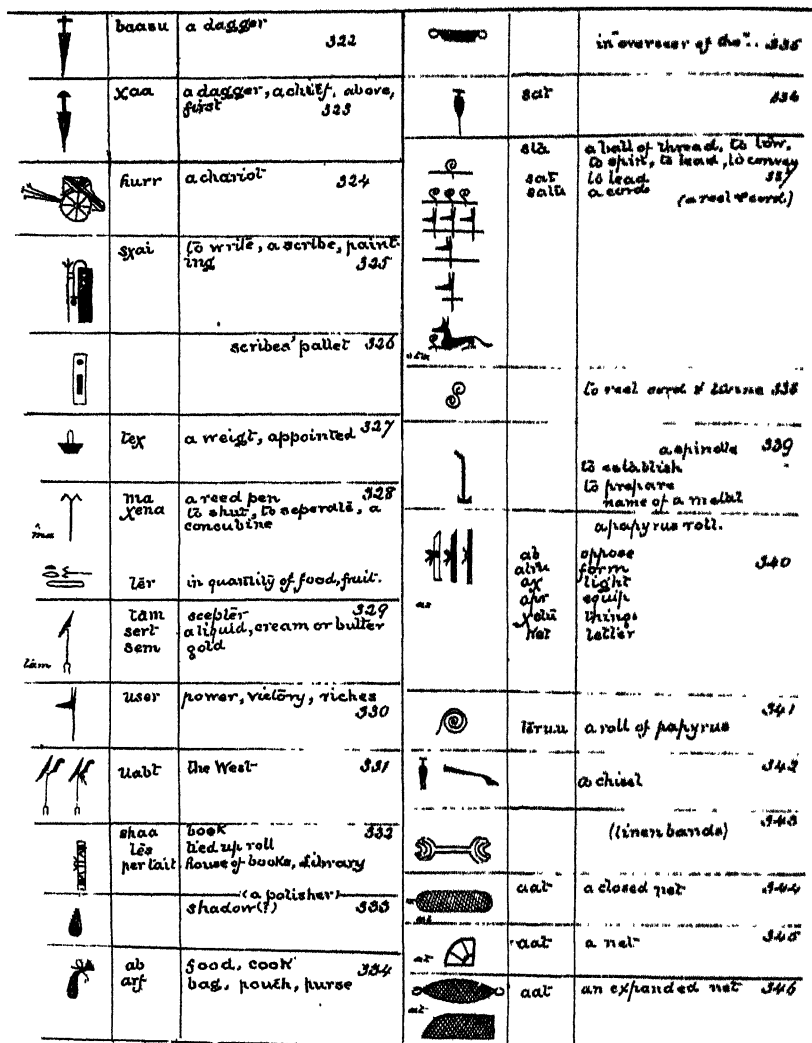 baasu a dagger
322
xaa a dagger, a chief, above,
first 323
hurr a chariot 324
sxai to write, a scribe, paint-
ing 325
scribes' pallet 326
tex a weigt, appointed 327
ma a reed pen 328
xena to shut, to seperate, a
concubine
ma
ter in quantity of food, fruit.
tam scepter 329
sert a liquid, cream or butter
sem gold
tam
user power, victory, riches
330
uabt the West 331
shaa book 332
tes tied up roll
per tait house of books, Library
(a polisher)
shadow(?) 333
ab food, cook 334
arf bag, pouch, purse
in "overseer of the".. 335
sat 336
sta a ball of thread, to tow,
to spin, to lead, to convey
sat to lead 337
satu a cord (a reel & cord)
to reel cord & twine 338
a spindle 339
to establish
to prepare
name of a metal
a papyrus roll.
ab oppose
form 340
ax light
apr equip
things
letter
341
teruu a roll of papyrus
342
a chisel
343
(linen bands)
aat a closed net 344
at
aat a net 345
at
aat an expanded net 346
at